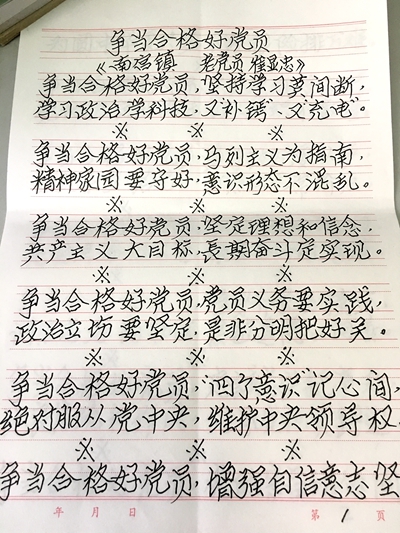 争当合格好党员
《南宫镇 老党员 崔显忠》
争当合格好党员,坚持学习莫间断,
学习政治学科技,又"补钙"、又"充电"。
※ ※ ※
争当合格好党员,马列主义为指南,
精神家园要守好,意识形态不混乱。
※ ※ ※
争当合格好党员,坚定理想和信念,
共产主义大目标,長期奋斗定实现。
※ ※ ※
争当合格好党员,党员义务要实践,
政治立场要坚定,是非分明把好关。
※ ※ ※
争当合格好党员,"四个意识"记心间,
绝对服从党中央,维护中央领导权
※ ※ ※
争当合格好党员,增强自信意志坚
年 月 日 第 1 页